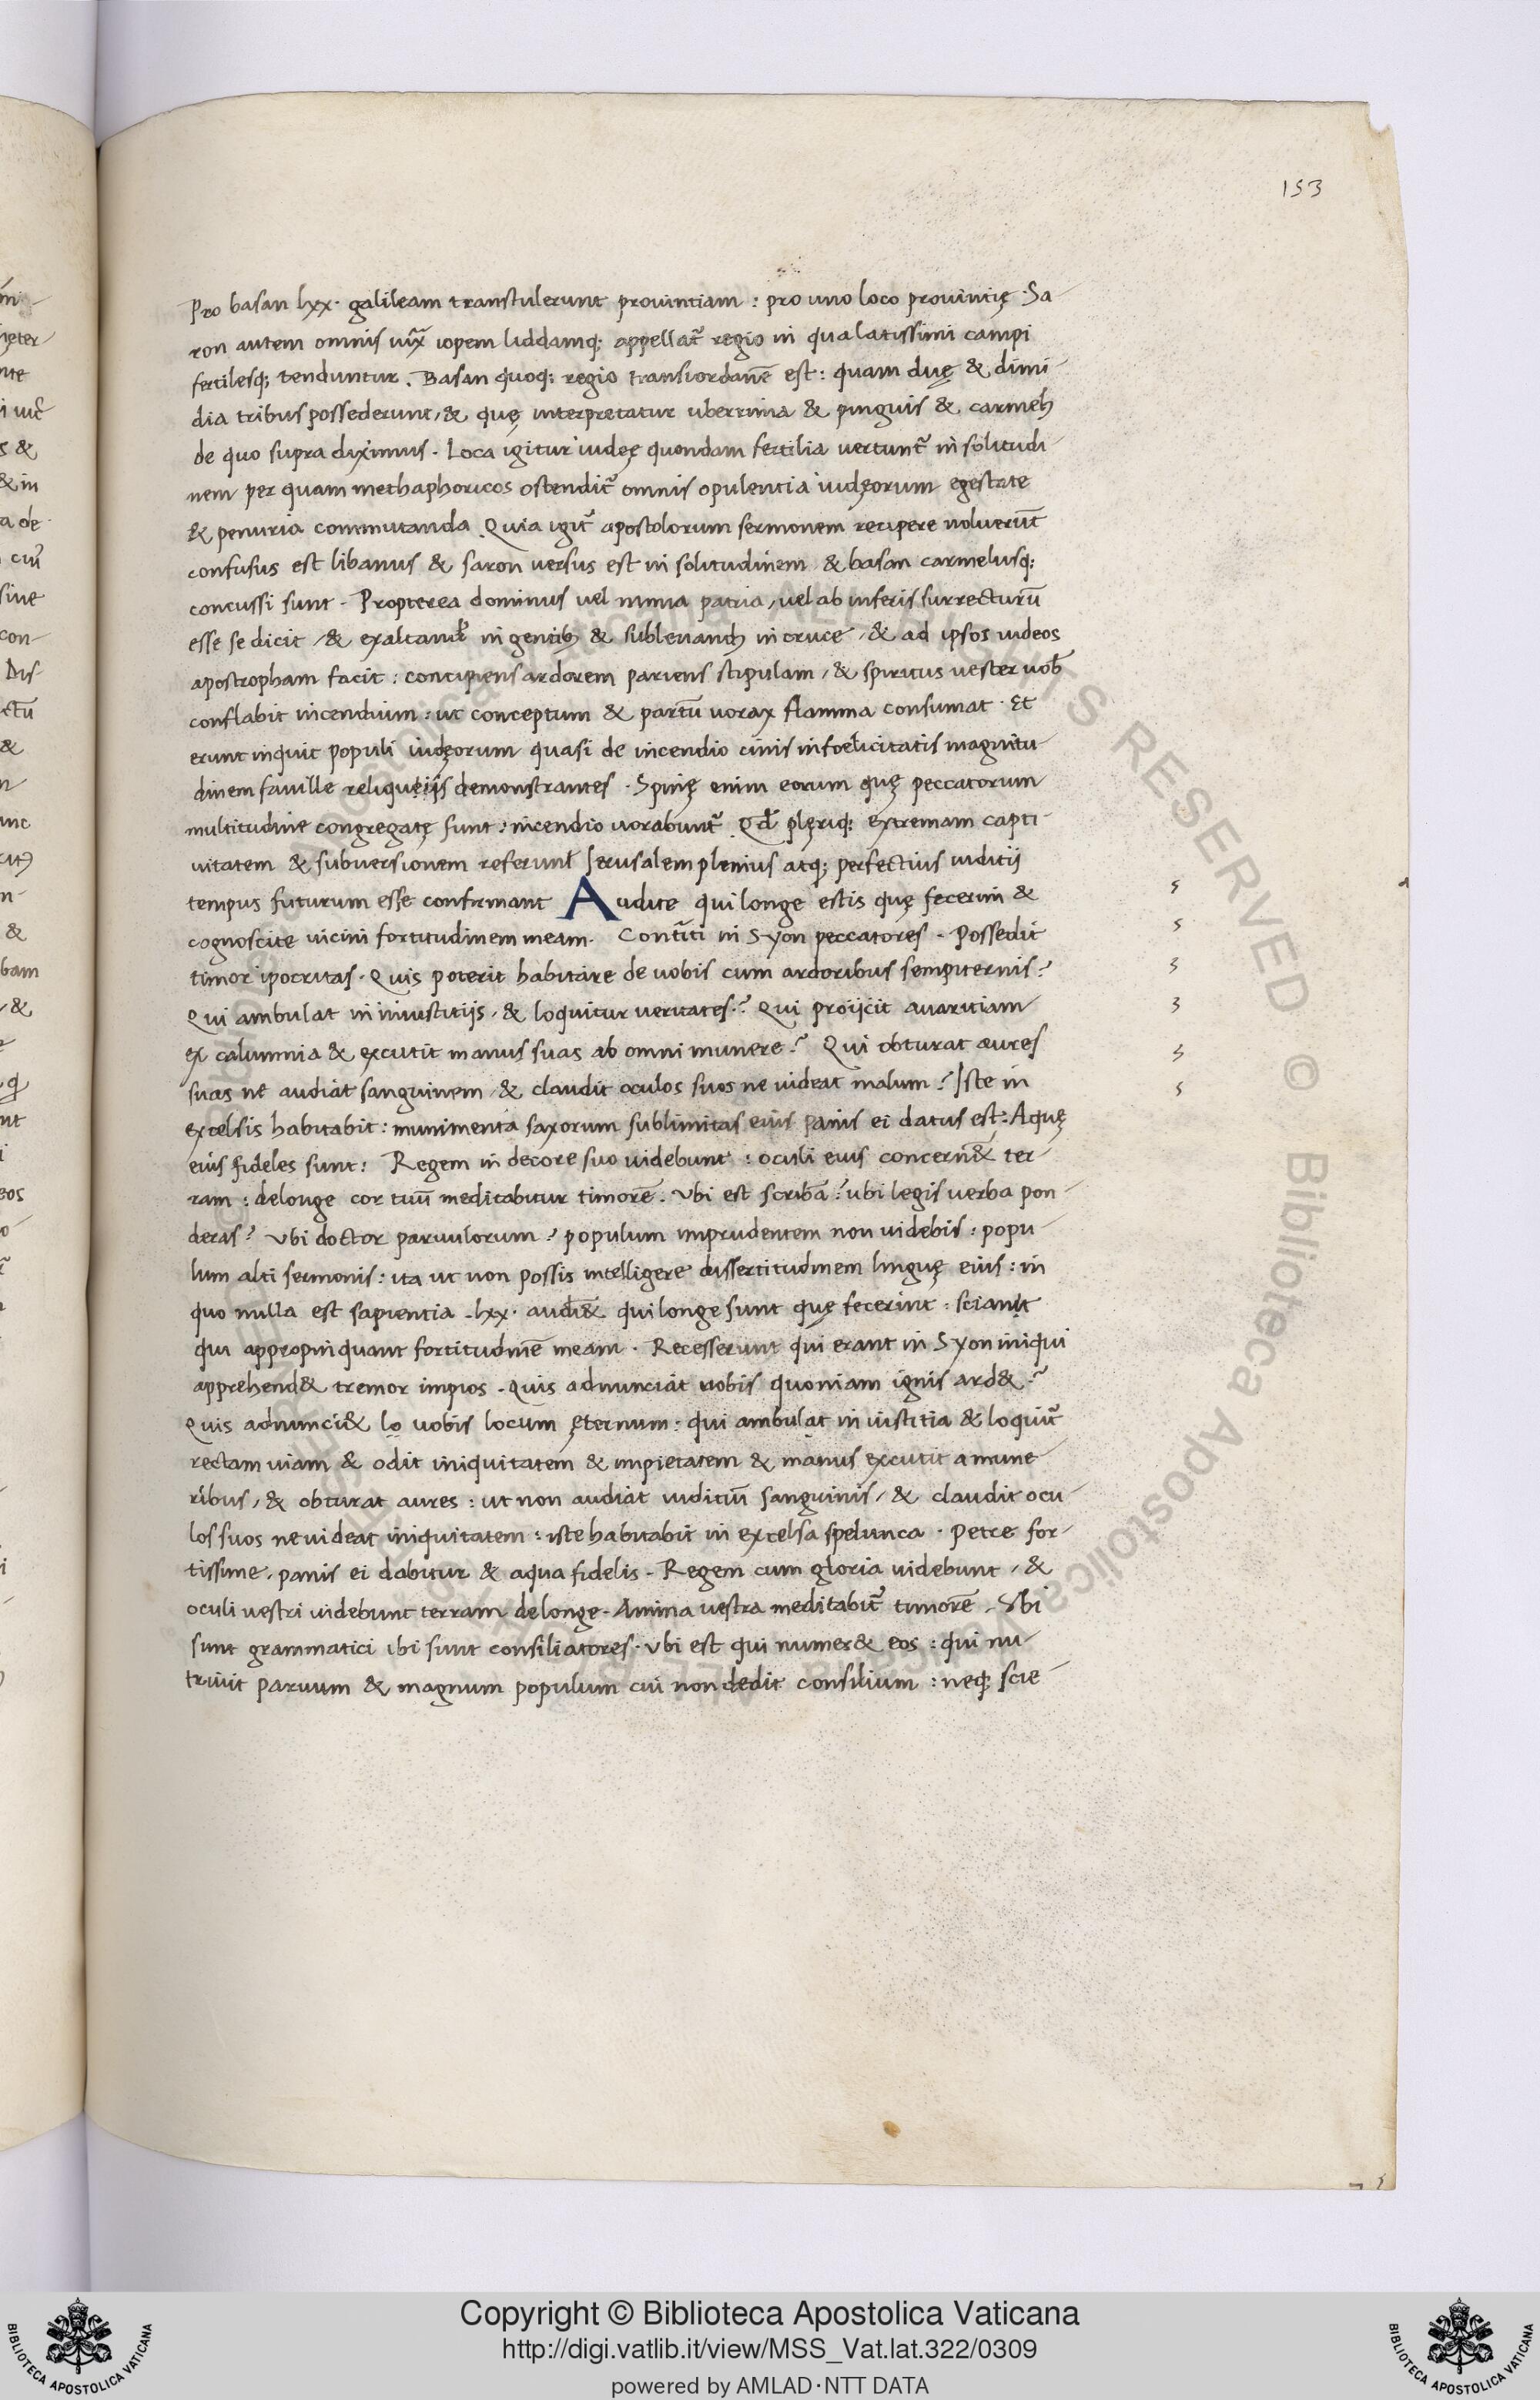 153
Pro basan lxx. galileam transtulerunt prouintiam : pro uno loco prouintię . Sa
ron autem omnis iuxͣ iopem liddamq; appellat᷑ regio in qua latissimi campi
fertilesq; tenduntur . Basan quoq; regio transiordanē est : quam duę & dimi
dia tribus possederunt, & quę interpretatur uberrima & pinguis & carmeli
de quo supra diximus . Loca igitur iudeę quondam fertilia vertunt᷑ in solitudi
nem per quam methaphoricos ostendit᷑ omnis opulentia iudęorum egestate
& penuria commutanda . Quia igit᷑ apostolorum sermonem recipere noluerūt
confusus est libanus & saron versus est in solitudinem & basan carmelusq;
concussi sunt . Propterea dominus vel patria, vel ab inferis surrecturū
esse se dicit, & in gentib; & subleuandū in cruce, & ad ipsos iudeos
apostropham facit : concipiens ardorem pariens stipulam, & spiritus uester uob̄
conflabit incendium : ut conceptum & partū uorax flamma consumat . Et
erunt inquit populi iudęorum quasi de incendio cinis infoelicitatis magnitu
dinem fauille reliquiis demonstrantes . Spinę enim eorum quę peccatorum
multitudine congregatę sunt : incendio uorabunt᷑ . Qd̄ plęriq; extremam capti
uitatem & subuersionem referunt Ierusalem plenius atq; perfectius iuditij
tempus futurum esse confirmant Audite qui longe estis quę fecerim &
cognoscite uicini fortitudinem meam. Contͥti in Syon peccatores . Possedit
timor ipocritas . Quis poterit habitare de uobis cum ardoribus sempiternis ?
Qui ambulat in iniustitijs, & loquitur ueritates . ? Qui proijcit auaritiam
ex calumnia & excutit manus suas ab omni munere ? Qui obturat aures
suas ne audiat sanguinem, & claudit oculos suos ne uideat malum ? Iste in
excelsis habitabit : munimenta saxorum sublimitas eius panis ei datus est : Aquę
eius fideles sunt : Regem in decore suo uidebunt : oculi eius concern& ter
ram : delonge cor tuū meditabitur timorē . Vbi est scriba ? ubi legis uerba pon
deras ? Vbi doctor paruulorum ? populum imprudentem non uidebis : popu
lum alti sermonis : ita ut non possis intelligere dissertitudinem linguę eius : in
quo nulla est sapientia . lxx. audi& qui longe sunt quę fecerint : sciant
qui appropinquant fortitudinē meam . Recesserunt qui erant in Syon iniqui
apprehend& tremor impios . Quis adnunciat uobis quoniam ignis ard& ?
Quis adnunci& lo uobis locum ęternum : qui ambulat in iustitia & loquit᷑
rectam uiam & odit iniquitatem & impietatem & manus excutit a mune
ribus, & obturat aures : ut non audiat iuditiū sanguinis, & claudit ocu
los suos ne uideat iniquitatem : iste habitabit in excelsa spelunca . Petre for
tissime . panis ei dabitur & aqua fidelis . Regem cum gloria uidebunt, &
oculi uestri uidebunt terram delonge . Anima uestra meditabit᷑ timorē . Vbi
sunt grammatici ibi sunt consiliatores . Vbi est qui numer& eos : qui nu
triuit paruum & magnum populum cui non dedit consilium : neq; scie
Copyright © Biblioteca Apostolica Vaticana
http://digi.vatlib.it/view/MSS_Vat.lat.322/0309
powered by AMLAD·NTT DATA